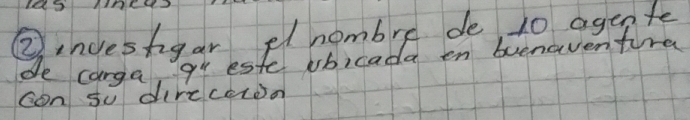 las lineas
② investigar el nombre de 10 agente
de carga, q" este ubicada en buenaventura
con su direccion